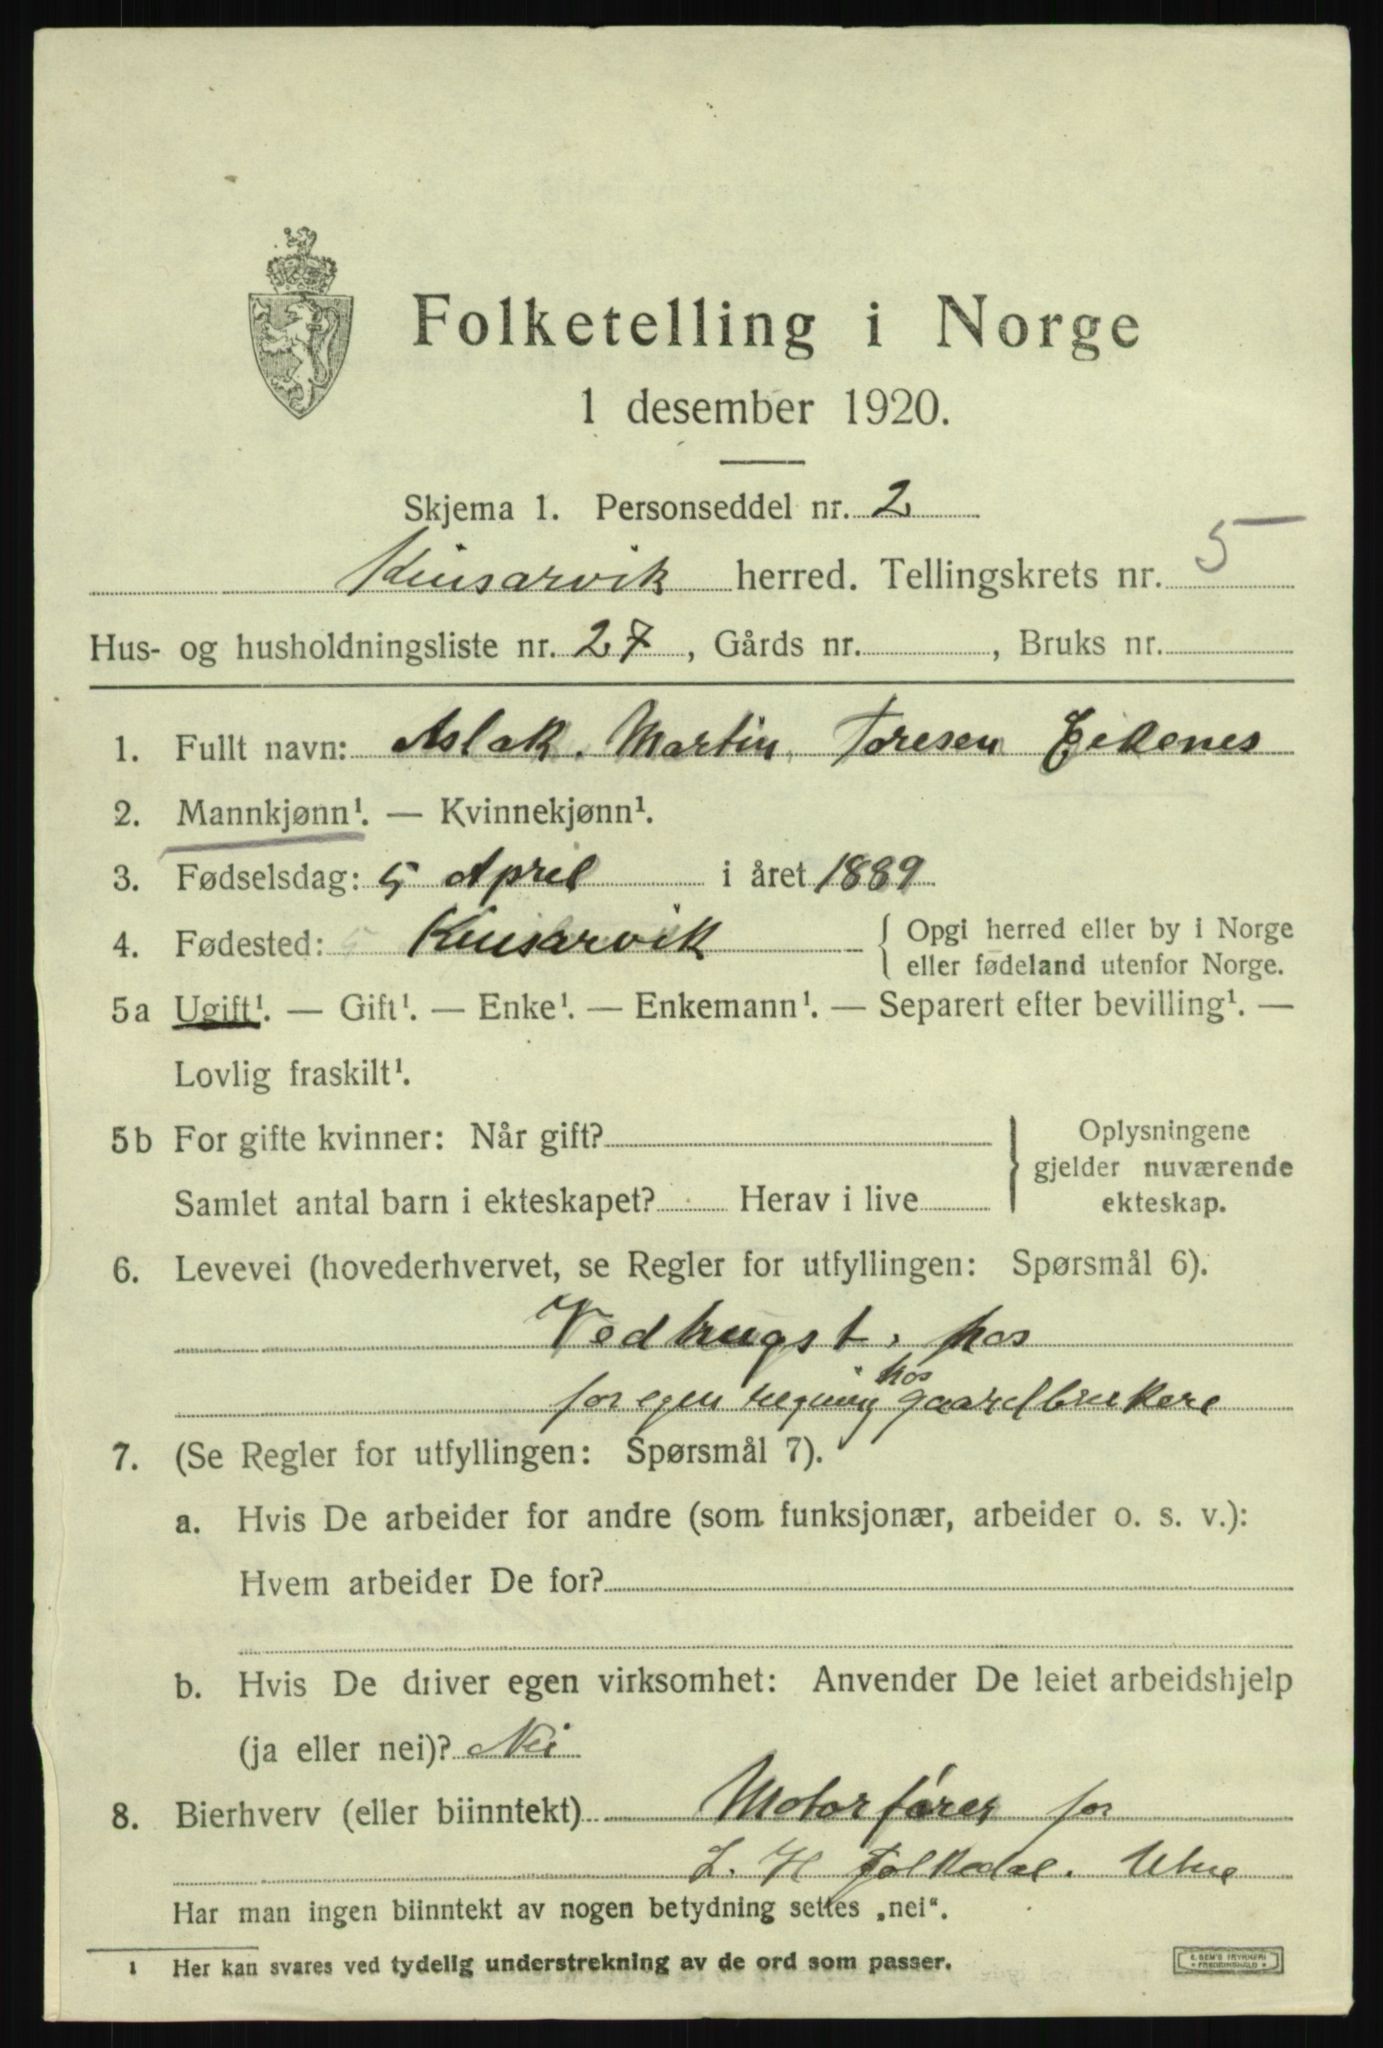 Folketelling i Norge
1 desember 1920.
Skjema 1. Personseddel nr. 2
Kinsarvik herred. Tellingskrets nr. 5
Hus- og husholdningsliste nr. 27, Gårds nr. , Bruks nr.
1. Fullt navn: Aslak. Martin Toresen Eikenes
2. Mannkjønn¹. — Kvinnekjønn¹.
3. Fødselsdag: 5 April i året 1889
4. Fødested: Kinsarvik { Opgi herred eller by i Norge
eller fødeland utenfor Norge.
5a Ugift¹. — Gift¹. — Enke¹. — Enkemann¹. — Separert efter bevilling¹. —
Lovlig fraskilt¹.
5b For gifte kvinner: Når gift? } Oplysningene
gjelder nuværende
Samlet antal barn i ekteskapet? Herav i live ekteskap.
6. Levevei (hovederhvervet, se Regler for utfyllingen: Spørsmål 6).
Vedhugst, hos
for egen regning hos gaardbrukere
7. (Se Regler for utfyllingen: Spørsmål 7).
a. Hvis De arbeider for andre (som funksjonær, arbeider o. s. v.):
Hvem arbeider De for?
b. Hvis De driver egen virksomhet: Anvender De leiet arbeidshjelp
(ja eller nei)? Nei
8. Bierhverv (eller biinntekt) Motorfører for
L. H Folkedal. Utne
Har man ingen biinntekt av nogen betydning settes „nei“.
1 Her kan svares ved tydelig understrekning av de ord som passer.
E. SEM'S TRYKKERI
• FREDRIKSHALD •